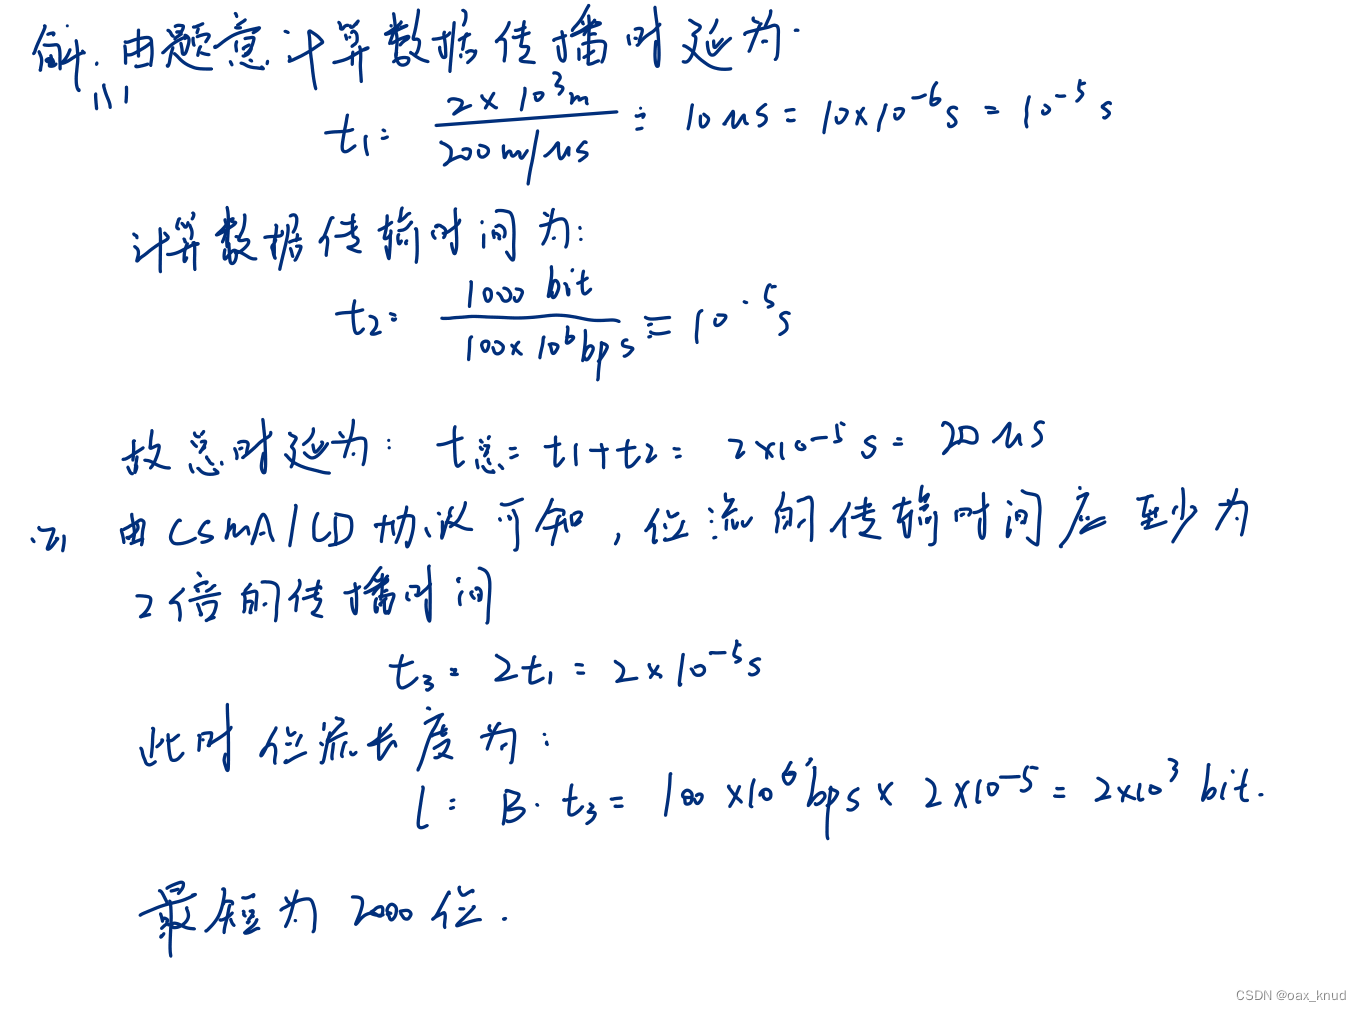 解. 由题意计算数据传播时延为.
(1)
t1 = 2 × 10^3 m / 200 m/μs = 10 μs = 10×10^-6 s = 10^-5 s
计算数据传输时间为:
t2 = 1000 bit / 100 × 10^6 bps = 10^-5 s
故总时延为: t总 = t1+t2 = 2×10^-5 s = 20 μs
(2) 由CSMA/CD协议可知, 位流的传输时间应至少为
2倍的传播时间
t3 = 2t1 = 2×10^-5 s
此时位流长度为:
l = B·t3 = 100 ×10^6 bps × 2×10^-5 = 2×10^3 bit.
最短为 2000 位.
CSDN @oax_knud